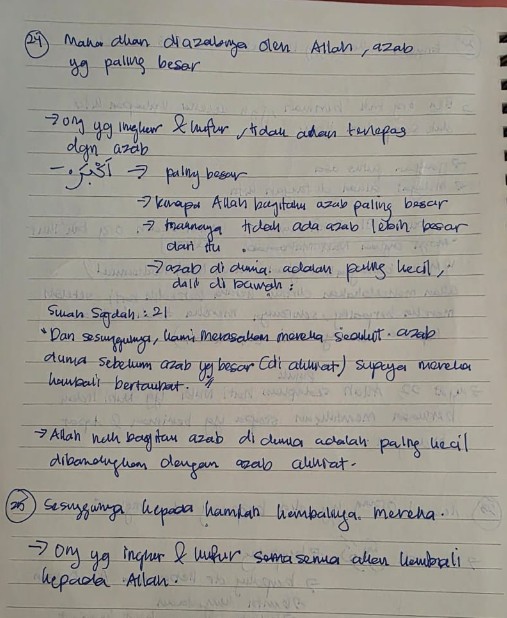 24 Maka akan diazabnya oleh Allah, azab
yg paling besar
→ Org yg ingkar & kufur, tidak akan terlepas
dgn azab
أَكْبَرْ → paling besar
→ kenapa Allah bagitahu azab paling besar
→ maknanya tidak ada azab lebih besar
dari itu.
→ azab di dunia adalah paling kecil,
dalil di bawah:
Surah Sajdah: 21
"Dan sesungguhnya, kami merasakan mereka sedikit azab
dunia sebelum azab yg besar (di akhirat) supaya mereka
kembali bertaubat."
→ Allah nak bagitau azab di dunia adalah paling kecil
dibandingkan dengan azab akhirat.
25 Sesungguhnya kepada kamilah kembalinya mereka.
→ Org yg ingkar & kufur semasenua akan kembali
kepada Allah.